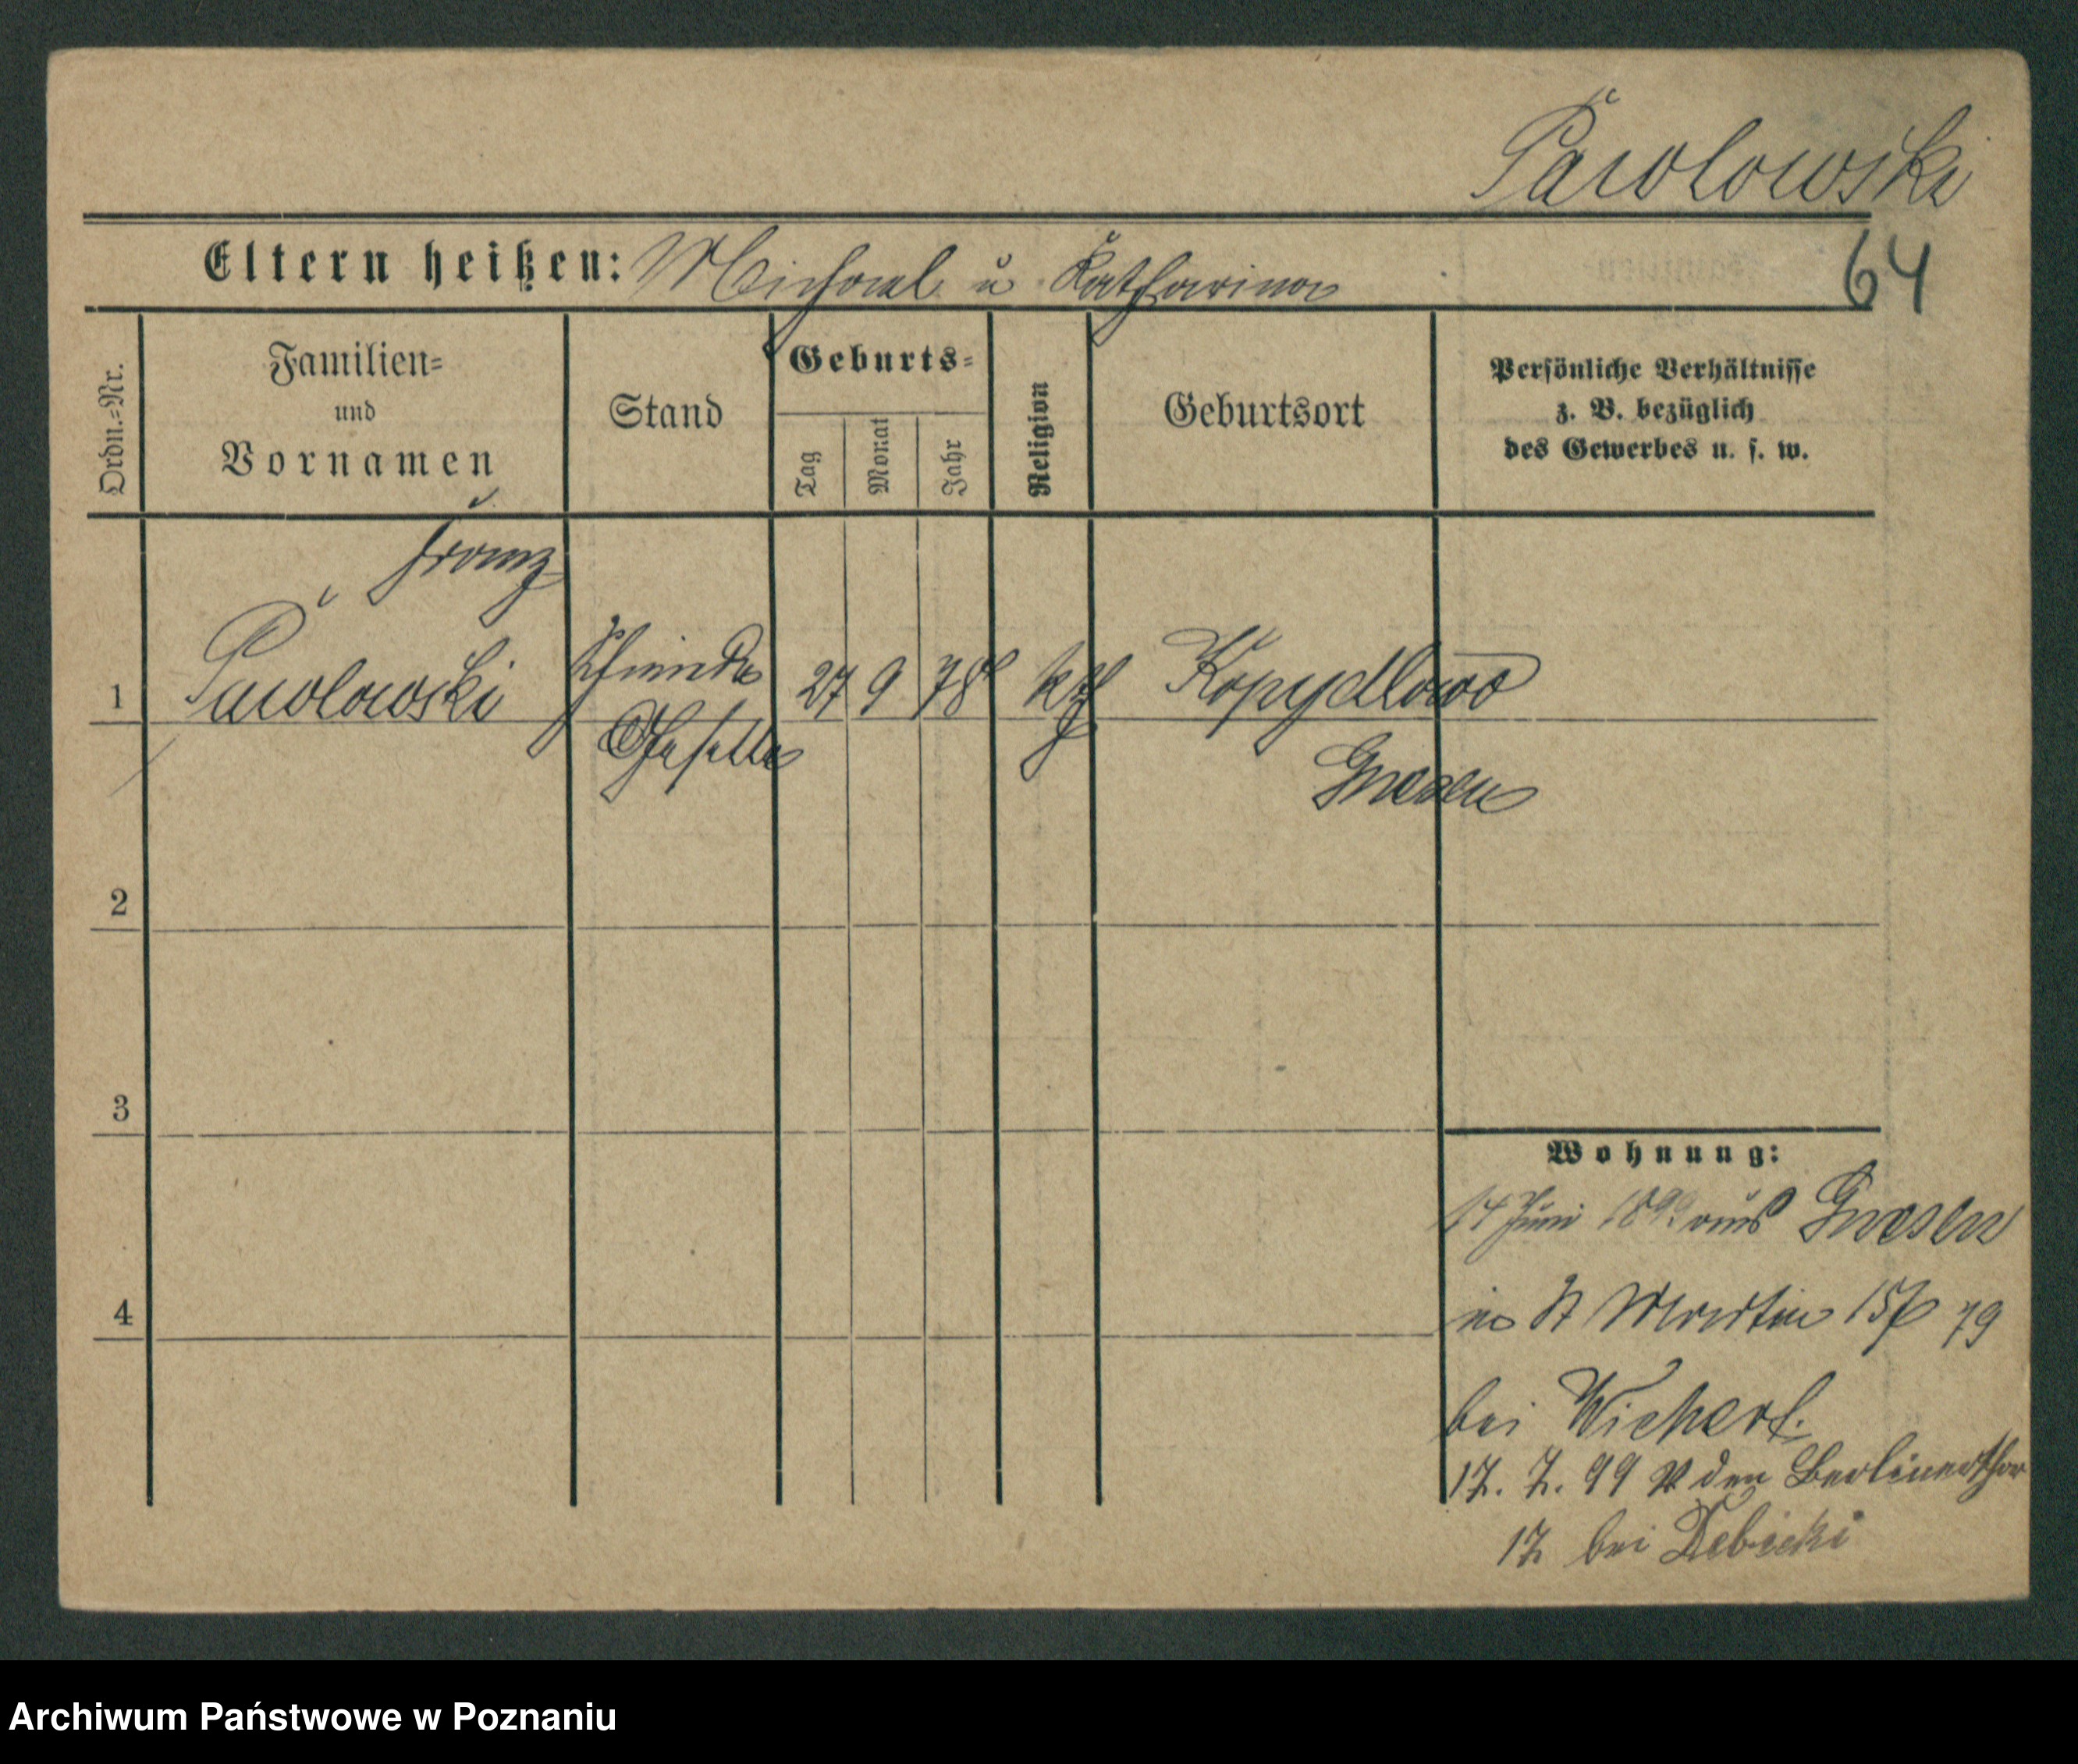 Pawlowski
Eltern heißen: Michael u Katharina
64
Ordn.=Nr.
Familien=
und
Vornamen
Stand
Geburts=
Tag
Monat
Jahr
Religion
Geburtsort
Persönliche Verhältnisse
z. B. bezüglich
des Gewerbes u. s. w.
Franz
1 Pawlowski 27 9 78 kth Kopydlowo
Geselle Gnesen
2
3
4
Wohnung:
14 Juni 1899 aus Gnesen
in St Martin
bei Wichert.
17. 7. 99 V den Berlinerthor
17 bei Debicki
Archiwum Państwowe w Poznaniu